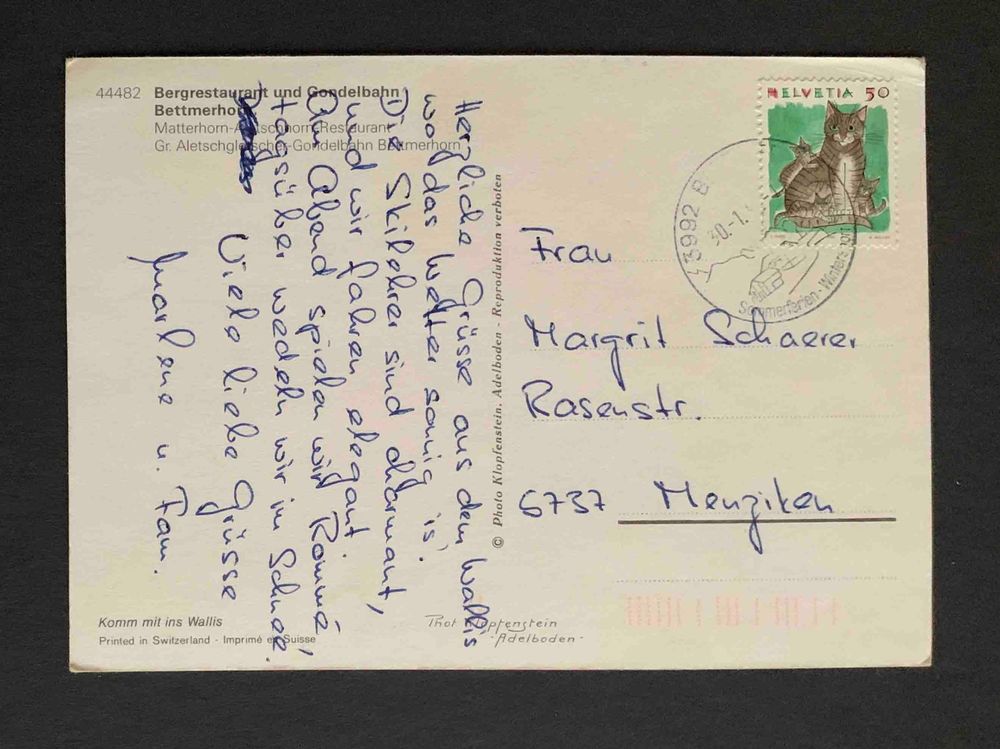 44482 Bergrestaurant und Gondelbahn
Bettmerhorn
Matterhorn-Aletschhorn-Restaurant
Gr. Aletschgletscher-Gondelbahn Bettmerhorn
Herzliche Grüsse aus dem Wallis,
wo das Wetter sonig is'.
Die Skilehrer sind charmant,
und wir fahren elegant.
Am Abend spielen wir Rommé,
tagsüber wedeln wir im Schnee.
Viele liebe Grüsse
Marlene u. Fam.
Komm mit ins Wallis
Printed in Switzerland - Imprimé en Suisse
© Photo Klopfenstein, Adelboden - Reproduktion verboten
Phot Klopfenstein
- Adelboden -
HELVETIA 50
3992 B
30.-1.
Sommerferien - Wintersport
Frau
Margrit Schaerer
Rasenstr.
5737 Menziken